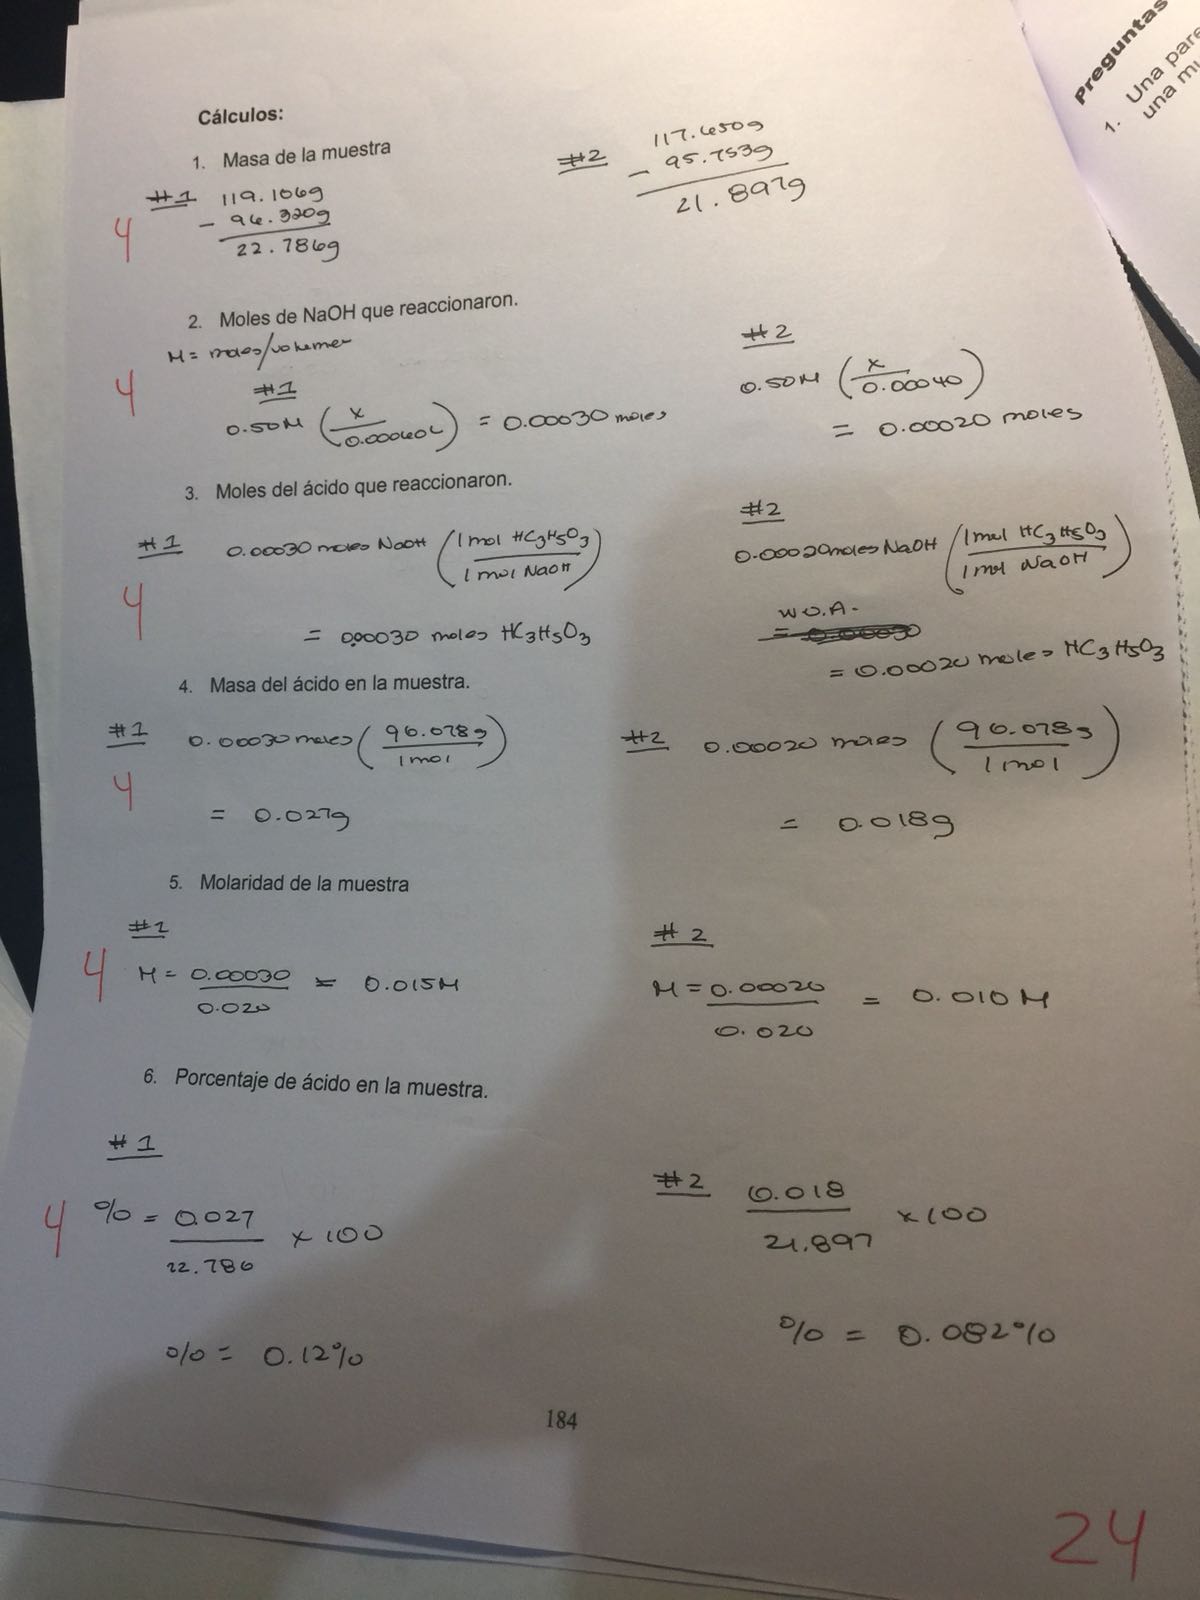 Preguntas
1. Una pare
una mu
Cálculos:
1. Masa de la muestra
#1 119.106g
- 96.320g
22.786g
4
#2 117.650g
- 95.753g
21.897g
2. Moles de NaOH que reaccionaron.
M = moles/volumen
4
#1
0.50M (x / 0.00060L) = 0.00030 moles
#2
0.50M (x / 0.00040)
= 0.00020 moles
3. Moles del ácido que reaccionaron.
#1 0.00030 moles NaOH (1 mol HC3H5O3 / 1 mol NaOH)
4
= 0.00030 moles HC3H5O3
#2
0.00020 moles NaOH (1 mol HC3H5O3 / 1 mol NaOH)
W.O.A.
= 0.00030
= 0.00020 moles HC3H5O3
4. Masa del ácido en la muestra.
#1 0.00030 moles (90.078g / 1 mol)
4
= 0.027g
#2 0.00020 moles (90.078g / 1 mol)
= 0.018g
5. Molaridad de la muestra
#1
4 M = 0.00030 / 0.020 = 0.015M
#2
M = 0.00020 / 0.020 = 0.010 M
6. Porcentaje de ácido en la muestra.
#1
4 % = 0.027 / 22.786 x 100
% = 0.12%
#2 0.018 / 21.897 x 100
% = 0.082%
184
24